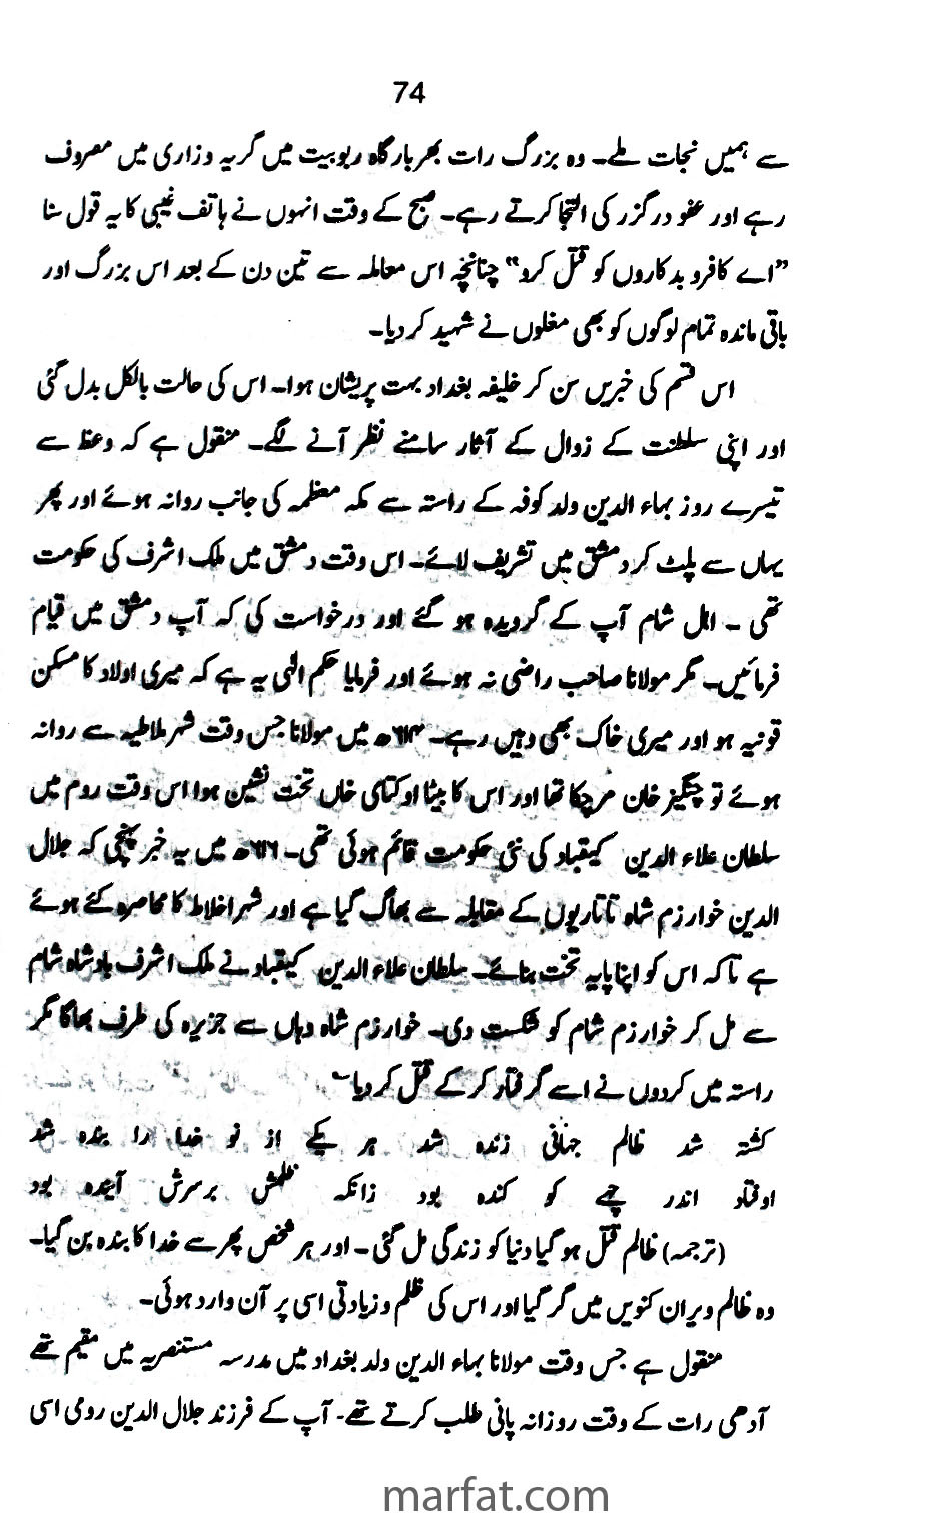 74
سے ہمیں نجات ملے۔ وہ بزرگ رات بھر بارگاہ ربوبیت میں گریہ و زاری میں مصروف
رہے اور عفو درگزر کی التجا کرتے رہے۔ صبح کے وقت انہوں نے ہاتف غیبی کا یہ قول سنا
”اے کافرو بدکاروں کو قتل کرو“ چنانچہ اس معاملہ سے تین دن کے بعد اس بزرگ اور
باقی ماندہ تمام لوگوں کو بھی مغلوں نے شہید کر دیا۔
اس قسم کی خبریں سن کر خلیفہ بغداد بہت پریشان ہوا۔ اس کی حالت بالکل بدل گئی
اور اپنی سلطنت کے زوال کے آثار سامنے نظر آنے لگے۔ منقول ہے کہ وعظ سے
تیسرے روز بہاء الدین ولد کوفہ کے راستہ سے مکہ معظمہ کی جانب روانہ ہوئے اور پھر
یہاں سے پلٹ کر دمشق میں تشریف لائے۔ اس وقت دمشق میں ملک اشرف کی حکومت
تھی ۔ اہل شام آپ کے گرویدہ ہو گئے اور درخواست کی کہ آپ دمشق میں قیام
فرمائیں۔ مگر مولانا صاحب راضی نہ ہوئے اور فرمایا حکم الٰہی یہ ہے کہ میری اولاد کا مسکن
قونیہ ہو اور میری خاک بھی وہیں رہے۔ ۶۱۴ھ میں مولانا جس وقت شہر ملاطیہ سے روانہ
ہوئے تو چنگیز خان مرچکا تھا اور اس کا بیٹا اوکتای خاں تخت نشین ہوا اس وقت روم میں
سلطان علاء الدین کیقباد کی نئی حکومت قائم ہوئی تھی۔ ۶۱۶ھ میں یہ خبر پہنچی کہ جلال
الدین خوارزم شاہ تاتاریوں کے مقابلہ سے بھاگ گیا ہے اور شہر اخلاط کا محاصرہ کئے ہوئے
ہے تاکہ اس کو اپنا پایہ تخت بنائے۔ سلطان علاء الدین کیقباد نے ملک اشرف بادشاہ شام
سے مل کر خوارزم شام کو شکست دی۔ خوارزم شاہ وہاں سے جزیرہ کی طرف بھاگا مگر
راستہ میں کردوں نے اسے گرفتار کر کے قتل کر دیا
کشتہ شد ظالم جہانی زندہ شد ہر یکے از نو خدا را بندہ شد
اوفتاد اندر چہے کو کندہ بود زانکہ ظلمش برسرش آیندہ بود
(ترجمہ) ظالم قتل ہو گیا دنیا کو زندگی مل گئی ۔ اور ہر شخص پھر سے خدا کا بندہ بن گیا۔
وہ ظالم ویران کنویں میں گر گیا اور اس کی ظلم و زیادتی اسی پر آن وارد ہوئی۔
منقول ہے جس وقت مولانا بہاء الدین ولد بغداد میں مدرسہ مستنصریہ میں مقیم تھے
آدھی رات کے وقت روزانہ پانی طلب کرتے تھے۔ آپ کے فرزند جلال الدین رومی اسی
marfat.com